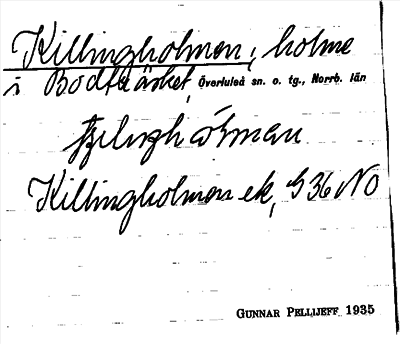 Killingholmen, holme
i Bodträsket, Överluleå sn. o. tg., Norrb. län
Killingholmen ek, S 36 NO
GUNNAR PELLIJEFF 1935